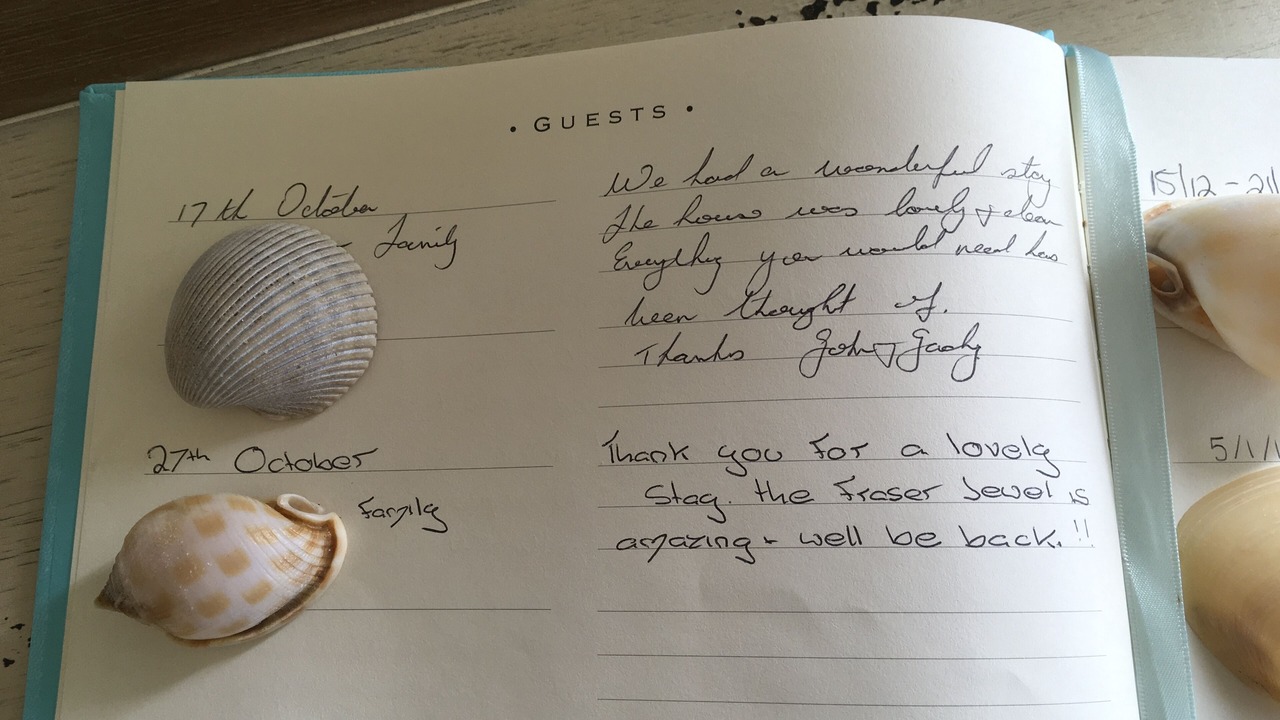 • GUESTS •
17th October
- Family
We had a wonderful stay
The house was lovely & clean
Everything you would need has
been thought of.
Thanks John &
27th October
Family
Thank you for a lovely
Stay. the Fraser Jewel is
amazing & well be back.!!
15/12 - 21/
5/1/1